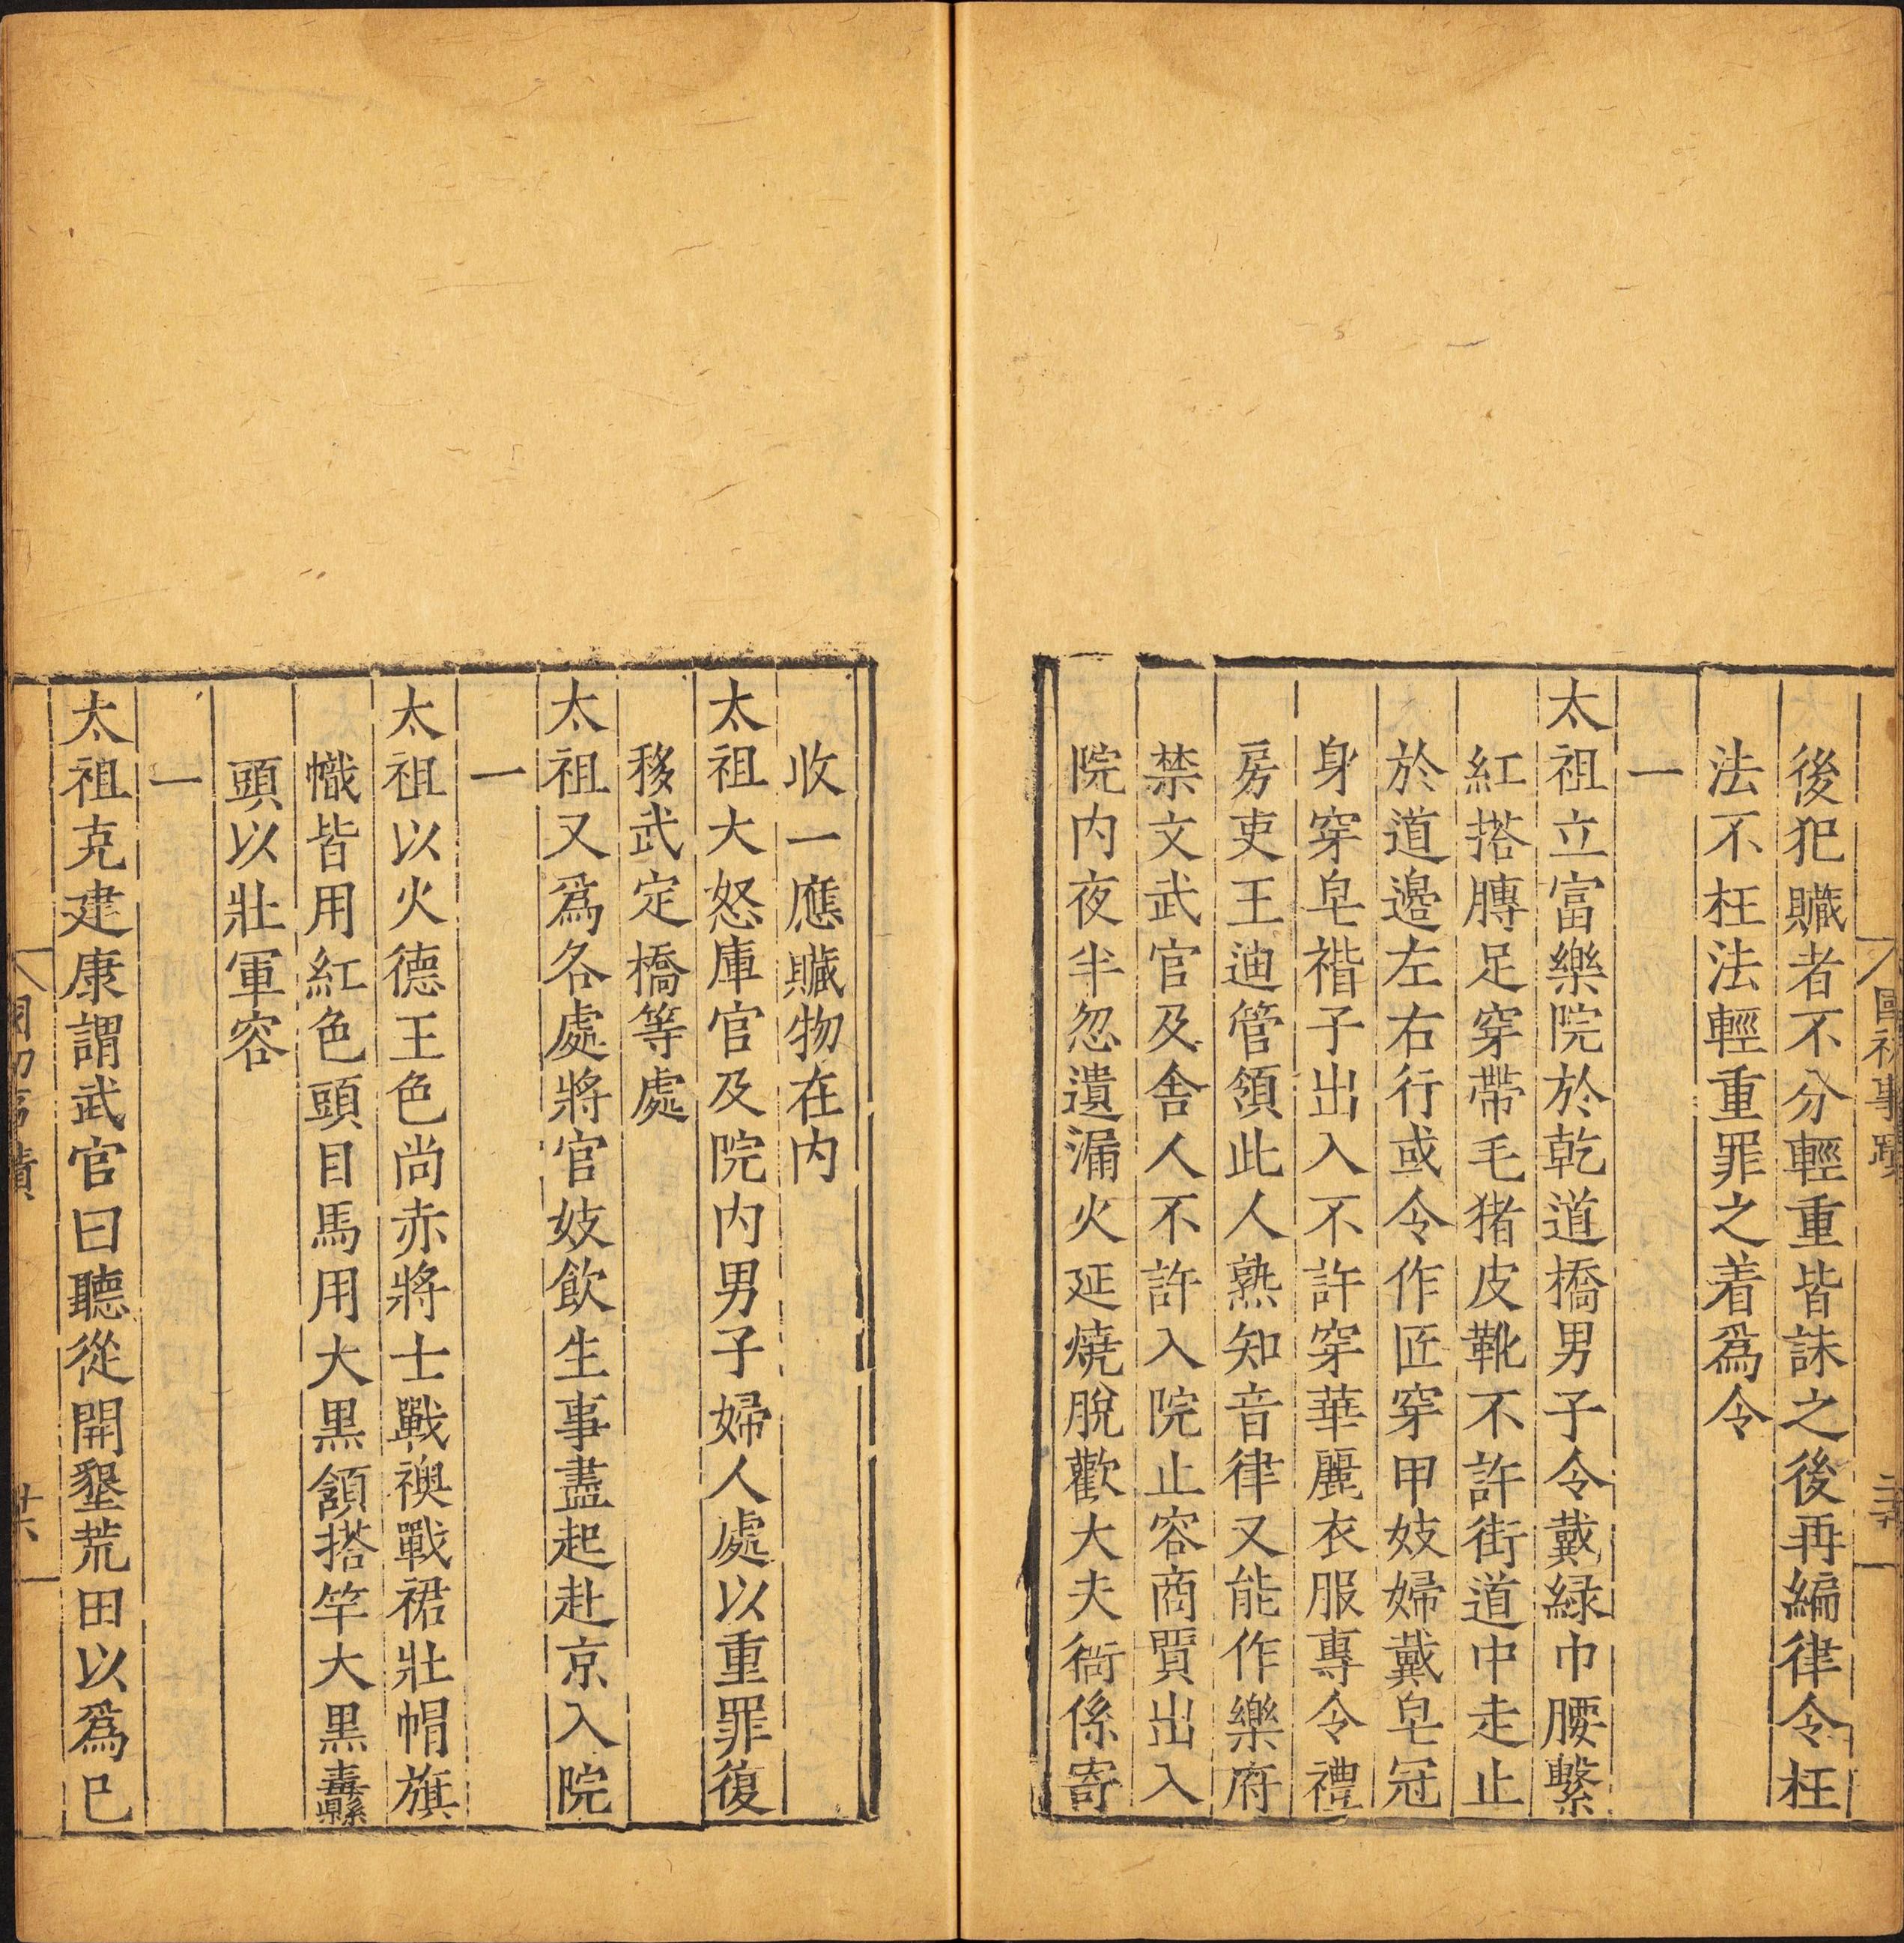 國初事蹟
後犯贓者不分輕重皆誅之後再編律令枉
法不枉法輕重罪之着爲令
一
太祖立富樂院於乾道橋男子令戴緑巾腰繫
紅搭膊足穿帶毛猪皮靴不許街道中走止
於道邊左右行或令作匠穿甲妓婦戴皂冠
身穿皂褙子出入不許穿華麗衣服專令禮
房吏王迪管領此人熟知音律又能作樂府
禁文武官及舍人不許入院止容商賈出入
院内夜半忽遺漏火延燒脫歡大夫衙係寄
收一應贓物在内
太祖大怒庫官及院内男子婦人處以重罪復
移武定橋等處
太祖又爲各處將官妓飲生事盡起赴京入院
一
太祖以火德王色尚赤將士戰襖戰裙壯帽旗
幟皆用紅色頭目馬用大黑額搭竿大黑纛
頭以壯軍容
一
太祖克建康謂武官曰聽從開墾荒田以爲已
國初事蹟
廿六